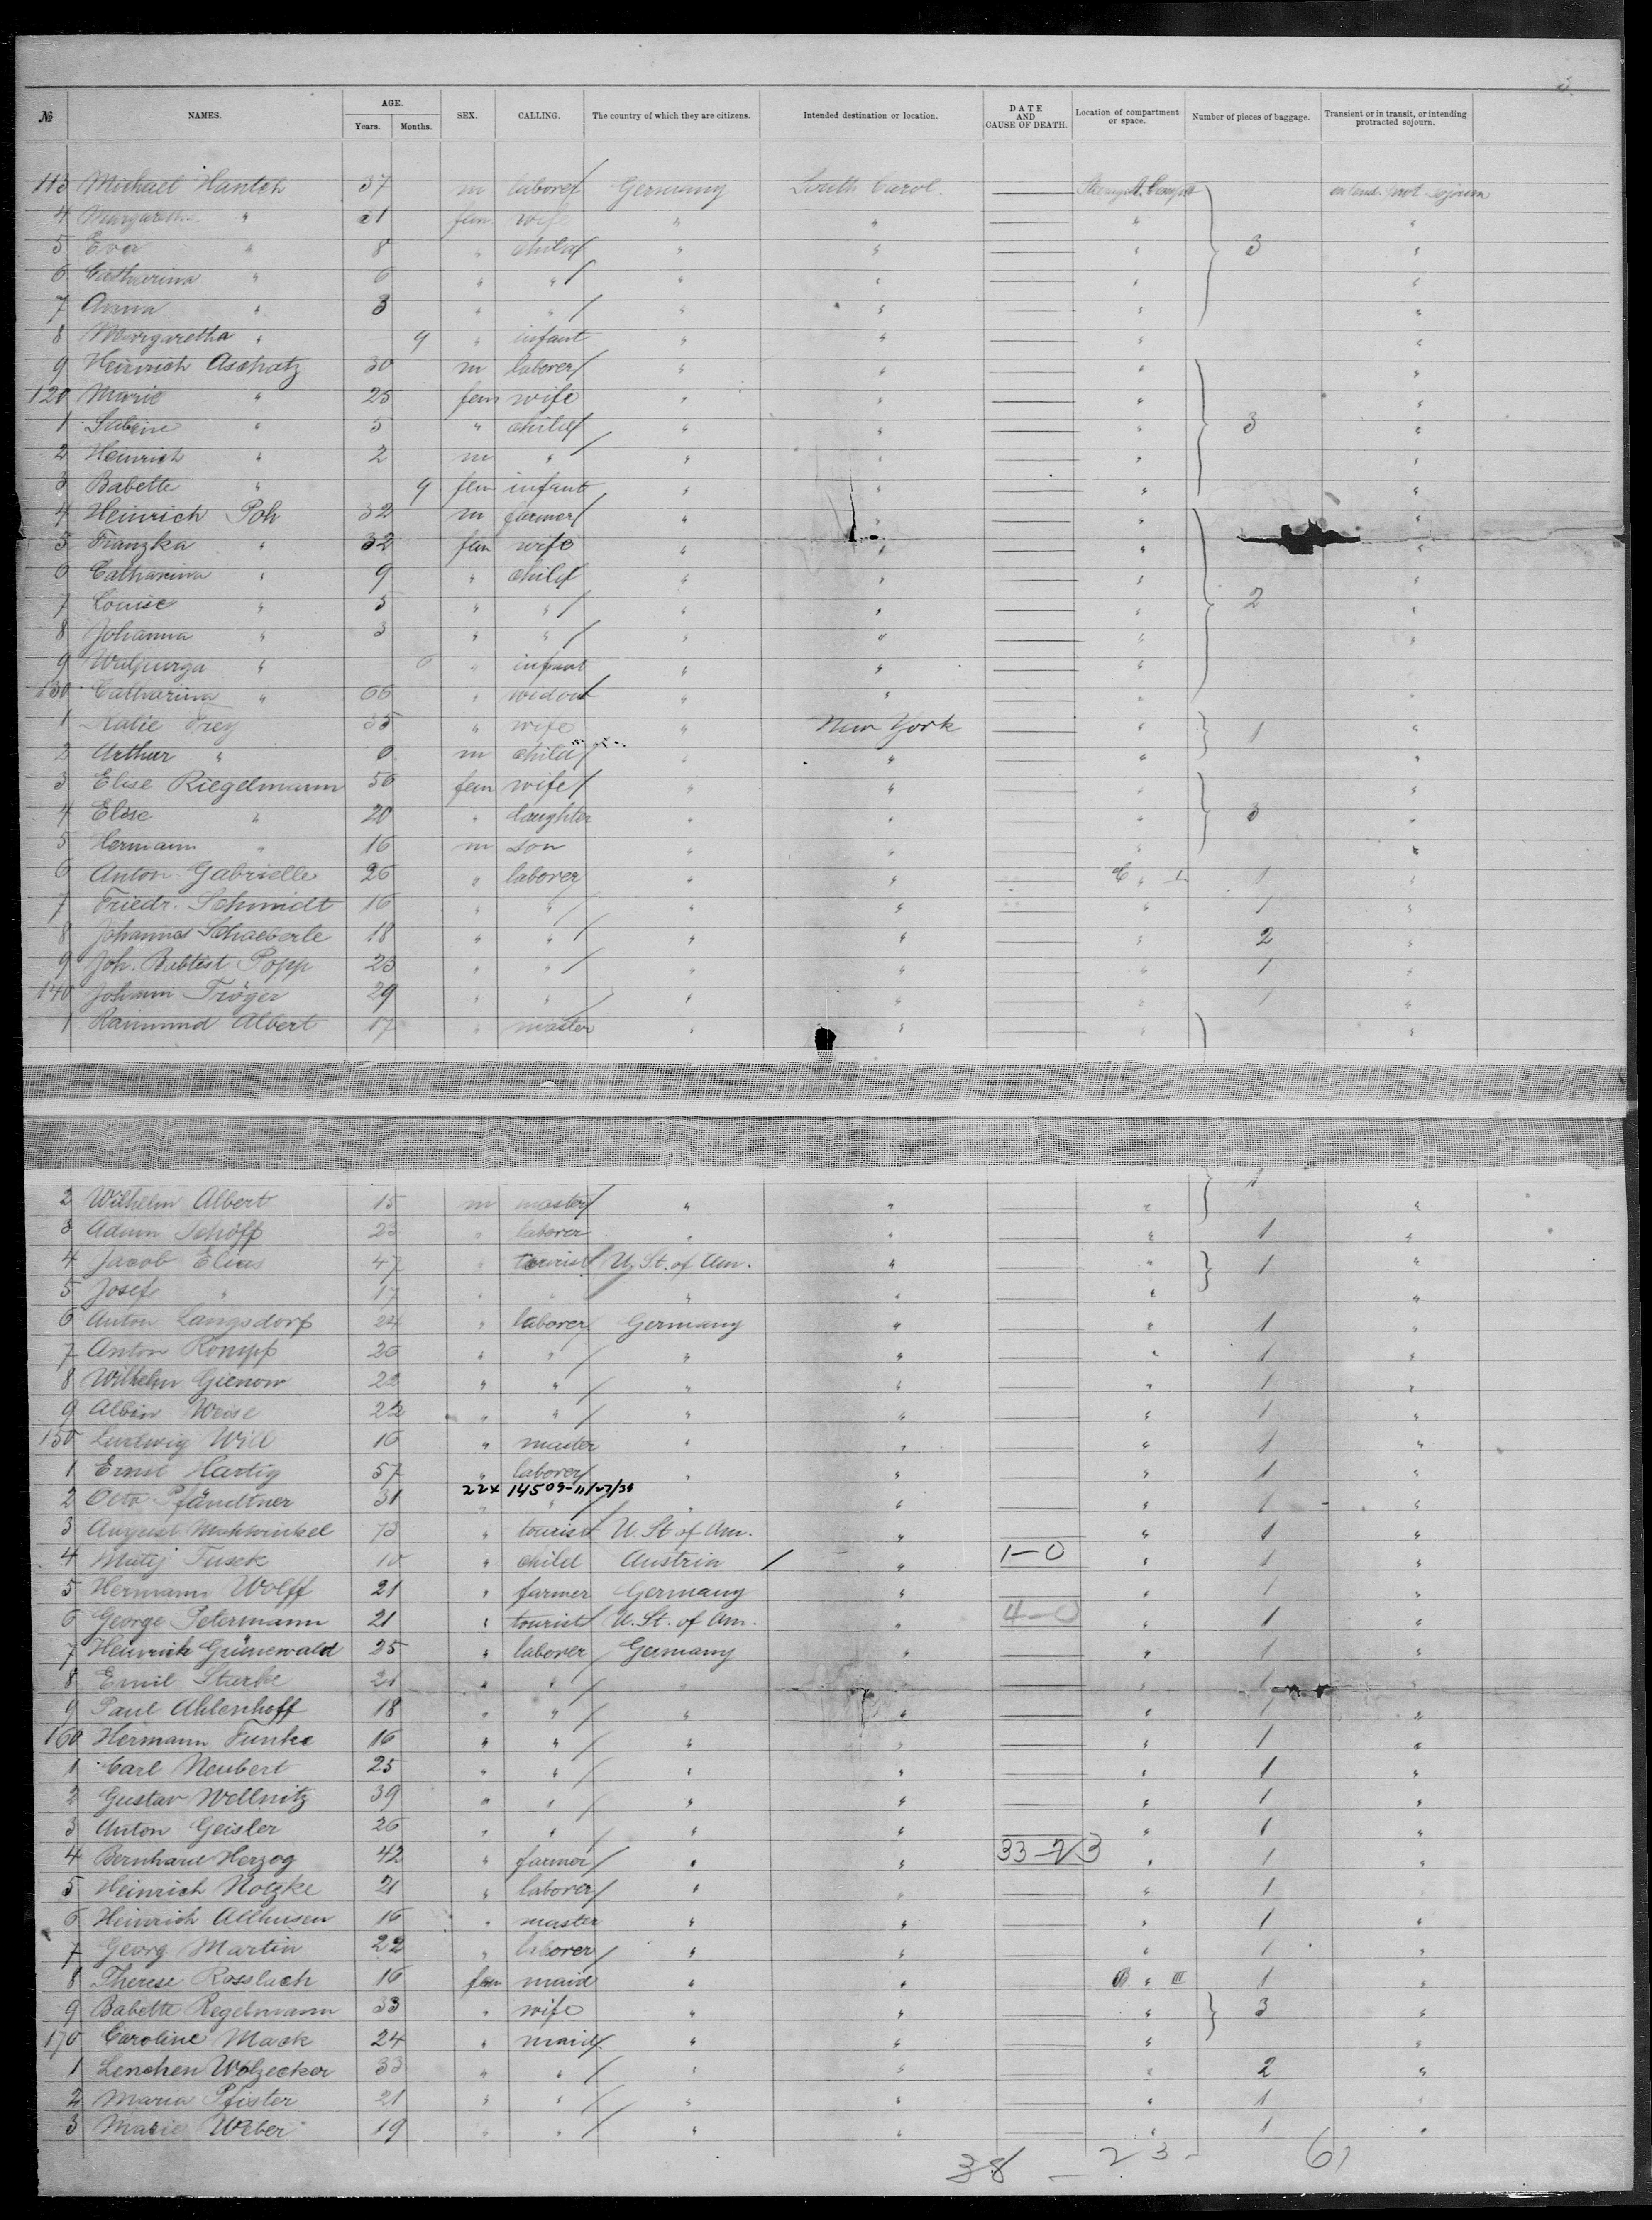 3.
№ NAMES. AGE. Years. Months. SEX. CALLING. The country of which they are citizens. Intended destination or location. DATE AND CAUSE OF DEATH. Location of compartment or space. Number of pieces of baggage. Transient or in transit, or intending protracted sojourn.
113 Michael Hantsh 37 m laborer Germany South Carol.
4 " fem wife " " " "
5 Eva " 8 " child " " " 3 "
6 Catharina " 6 " " " " " "
7 Anna " 3 " " " " " "
8 Margaretha " 9 " infant " " " "
9 Heinrich Aschatz 30 m laborer " " " "
120 Marie " 25 fem wife " " " "
1 Sabine " 5 " child " " " 3 "
2 Heinrich " 2 m " " " " "
3 Babette " 9 fem infant " " " "
4 Heinrich Poh 32 m farmer " " " "
5 Franzka " 32 fem wife " " " "
6 Catharina " 9 " child " " " "
7 Louise " 5 " " " " " 2 "
8 Johanna " 3 " " " " " "
9 Walpurga " " infant " " "
130 Catharina " 66 " widow " " " "
1 Katie Frey 35 " wife " New York " 1 "
2 Arthur " m child " " " "
3 Elise Riegelmann 56 fem wife " " " "
4 Elise " 20 " daughter " " " 3 "
5 Hermann " 16 m son " " " "
6 Anton Gabrielle 26 " laborer " " 1 "
7 Friedr. Schmidt 16 " " " " " 1 "
8 Johannes Schaeberle 18 " " " " " 2 "
9 Joh. Babtist Popp 23 " " " " " 1 "
140 Johann Tröger 29 " " " " " 1 "
1 Raimund Albert 17 " master " " " "
2 Wilhelm Albert 15 m master " " " 1 "
3 Adam Schöff 23 " laborer " " " 1 "
4 Jacob Elias 47 " tourist U. St. of Am. " " 1 "
5 Josef " 17 " " " " " "
6 Anton Langsdorf 24 " laborer Germany " " 1 "
7 Anton Rompf 26 " " " " " 1 "
8 Wilhelm Gienow 22 " " " " " 1 "
9 Albin Weise 22 " " " " " 1 "
150 Ludwig Will 16 " master " " " 1 "
1 Ernst Hartig 57 " laborer " " " 1 "
22x 14509-11/27/39
2 Otto Pfändtner 31 " " " " " 1 "
3 August 73 " tourist U. St. of Am. " " 1 "
4 Matij Tusek 10 " child Austria " 1-0 " 1 "
5 Hermann Wolff 21 " farmer Germany " " 1 "
6 George Petermann 21 " tourist U. St. of Am. " 4-0 " 1 "
7 Heinrich Grünewald 25 " laborer Germany " " 1 "
8 Emil Starke 21 " " " " " 1 "
9 Paul Ahlenhoff 18 " " " " " 1 "
160 Hermann Funke 16 " " " " " 1 "
1 Carl Neubert 25 " " " " " 1 "
2 Gustav Wellnitz 39 " " " " " 1 "
3 Anton Geisler 26 " " " " " 1 "
4 Bernhard Herzog 42 " farmer " " " 1 "
5 Heinrich Notzke 21 " laborer " " " 1
6 Heinrich Allhusen 16 " master " " " 1 "
7 Georg Martin 22 " laborer " " " 1 "
8 Therese Rosslach 16 fem maid " " B. " III 1 "
9 Babette Regelmann 33 " wife " " " 3 "
170 Caroline Mack 24 " maid " " " "
1 Lenchen Wolzecker 33 " " " " " 2 "
2 Maria Pfister 21 " " " " " 1
3 Marie Weber 19 " " " " " 1 "
38 - 23 - 61